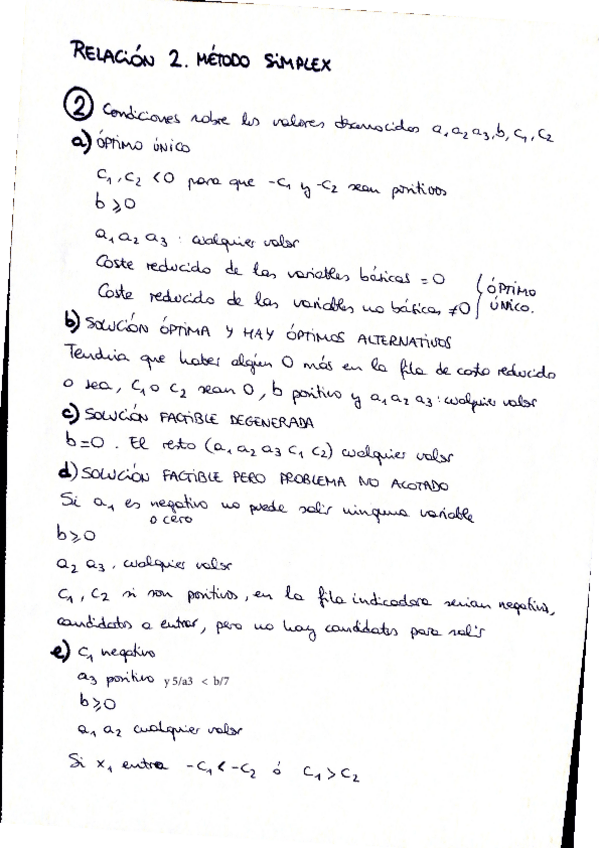 RELACIÓN 2. MÉTODO SIMPLEX
② Condiciones sobre los valores desconocidos a₁ a₂ a₃, b, c₁, c₂
a) ÓPTIMO ÚNICO
c₁, c₂ < 0 para que -c₁ y -c₂ sean positivos
b ⩾ 0
a₁ a₂ a₃ : cualquier valor
Coste reducido de las variables básicas = 0
Coste reducido de las variables no básicas ≠ 0
ÓPTIMO
ÚNICO.
b) SOLUCIÓN ÓPTIMA Y HAY ÓPTIMOS ALTERNATIVOS
Tendría que haber algún 0 más en la fila de costo reducido
o sea, c₁ o c₂ sean 0, b positivo y a₁ a₂ a₃ : cualquier valor
c) SOLUCIÓN FACTIBLE DEGENERADA
b = 0. El resto (a₁ a₂ a₃ c₁ c₂) cualquier valor
d) SOLUCIÓN FACTIBLE PERO PROBLEMA NO ACOTADO
Si a₁ es negativo no puede salir ninguna variable
o cero
b ⩾ 0
a₂ a₃, cualquier valor
c₁, c₂ si son positivos, en la fila indicadora serian negativos,
candidatos a entrar, pero no hay candidatos para salir
e) c₁ negativo
a₃ positivo y 5/a3 < b/7
b ⩾ 0
a₁ a₂ cualquier valor
Si x₁ entra -c₁ < -c₂ ó c₁ > c₂